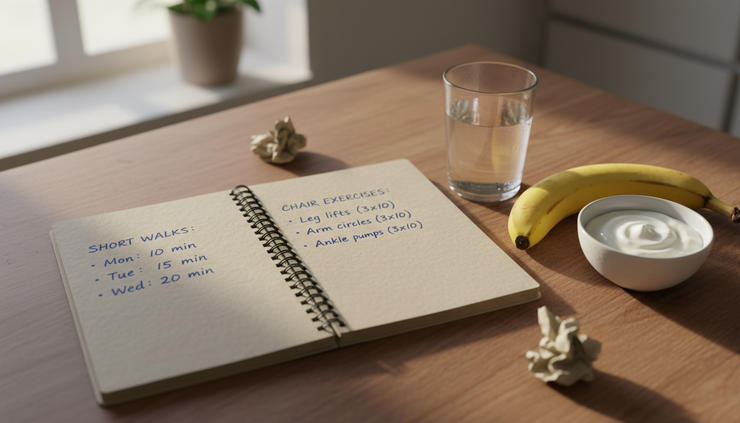 SHORT WALKS:
• Mon: 10 min
• Tue: 15 min
• Wed: 20 min
CHAIR EXERCISES:
• Leg lifts (3x10)
• Arm circles (3x10)
• Ankle pumps (3x10)